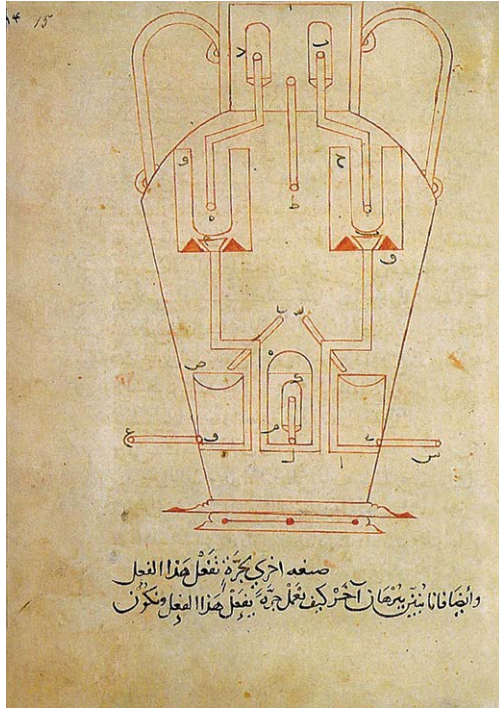 ١٤ 15
ا
و ح
ط
ه
و
ص
م
ع
س
ا
صنعه اخرى بجرّة تفعل هذا الفعل
وأيضا فانا نبين ببرهان آخر كيف نعمل جرّة يفعل هذا الفعل وتكون